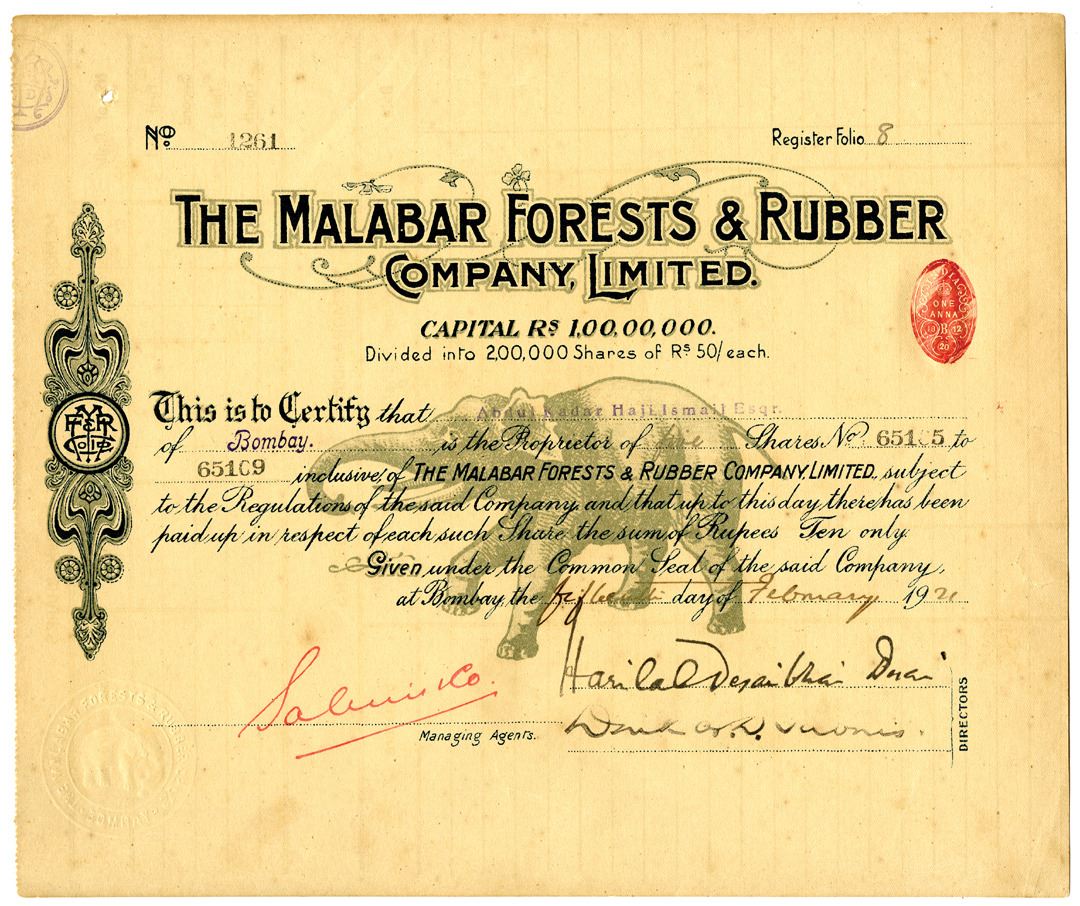 No. 1261
Register Folio 8
THE MALABAR FORESTS & RUBBER
COMPANY, LIMITED.
CAPITAL Rs 1,00,00,000.
Divided into 2,00,000 Shares of Rs 50/ each.
INDIA
ONE
ANNA
B
20
This is to Certify that Abdul Kadar Haji Ismail Esqr.
of Bombay. is the Proprietor of five Shares No 65105 to
65109 inclusive, of THE MALABAR FORESTS & RUBBER COMPANY, LIMITED, subject
to the Regulations of the said Company, and that up to this day, there has been
paid up in respect of each such Share the sum of Rupees Ten only.
Given under the Common Seal of the said Company,
at Bombay, the fifteenth day of February 1921
Harilal Desaibhai Desai
Managing Agents.
DIRECTORS